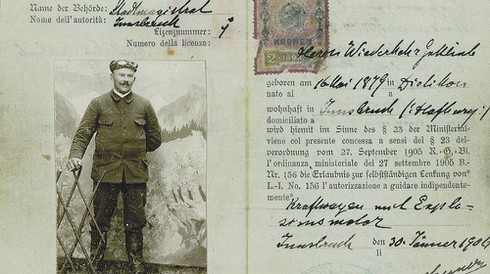 Name der Behörde: Stadtmagistrat
Nome dell'autorità: Innsbruck
Lizenznummer: 1
Numero della licenza:
KRONEN
2
Herrn Wiederkehr Gottlieb
geboren am 16 Mai 1879 in Dietikon
nato al a
wohnhaft in Innsbruck (:Hofburg:)
domiciliato a
wird hiemit im Sinne des § 23 der Ministerial-
viene col presente concessa a sensi del § 23 del-
verordnung vom 27. September 1905 R.-G.-Bl.
l'ordinanza ministeriale dei 27 settembre 1905 B.-
Nr. 156 die Erlaubnis zur selbständigen Lenkung von
L.-I. No. 156 l'autorizzazione a guidare indipendente-
mente
Kraftwagen mit Explo-
sionsmotor
Innsbruck den 30. Jänner
li